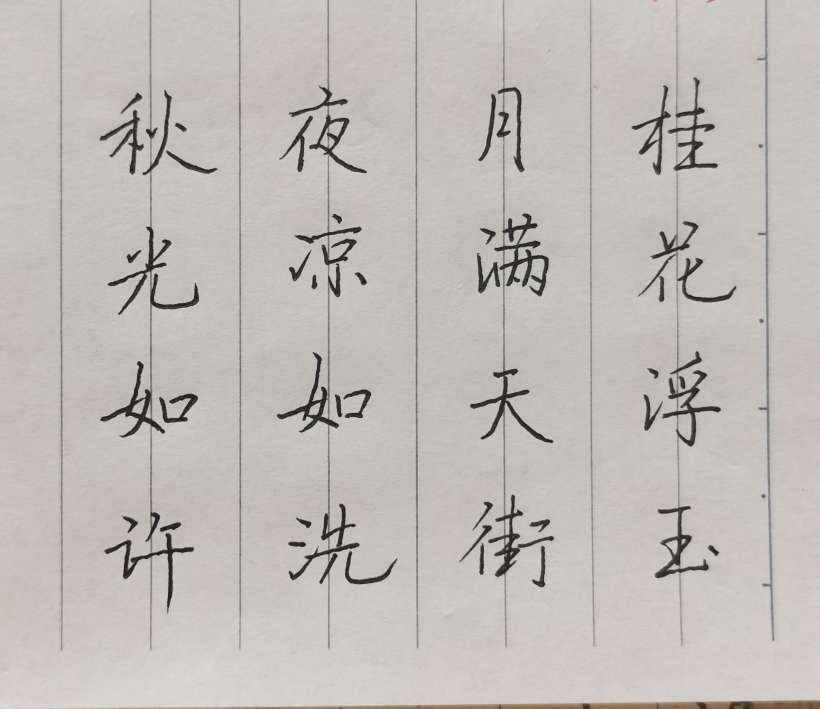 桂花浮玉
月满天街
夜凉如洗
秋光如许